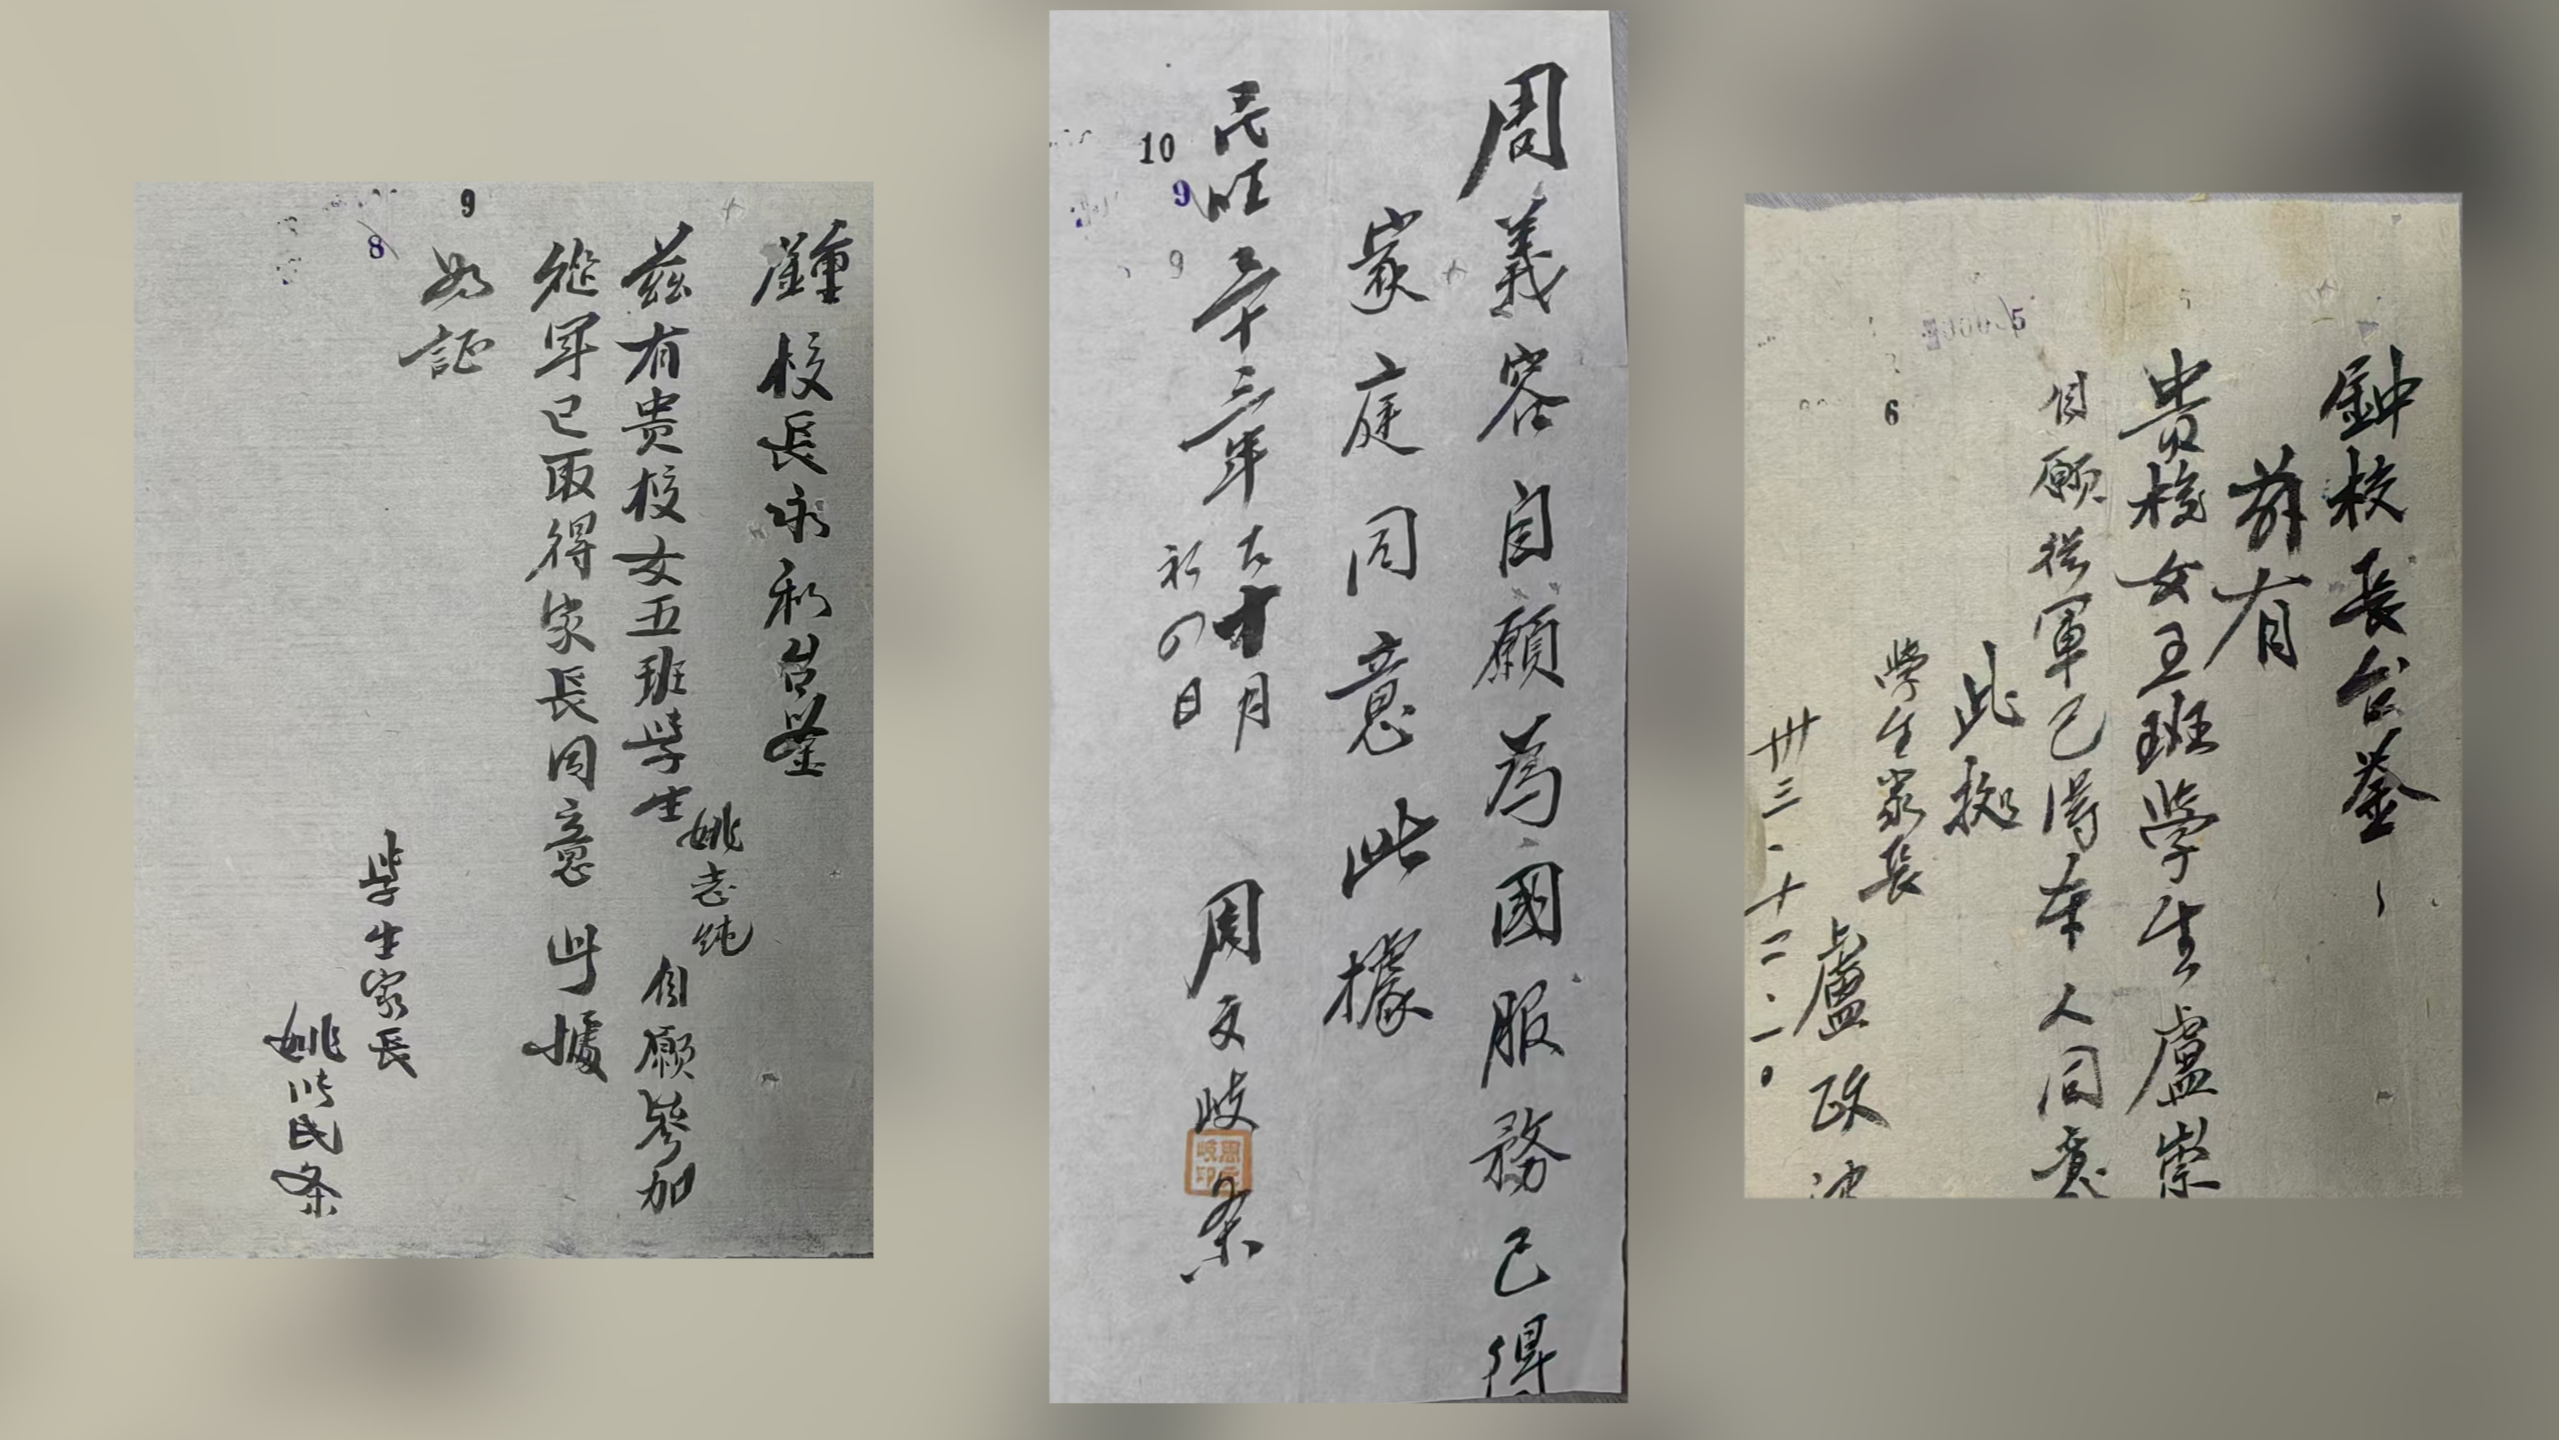 9
8
鍾校長永和台鉴
兹有贵校女五班學生姚志純自願參加
從军已取得家長同意此據
為証
學生家長
姚以民条
10
9
9
周義容自願為國服務已得
家庭同意此據
民国三十三年十月
初四日
周文岐条
周文岐印
5
6
鈡校長台鉴
兹有
贵校女王班學生盧崇
自願從軍已得本人同意
此据
學生家長
盧政
卅三.十二.一0